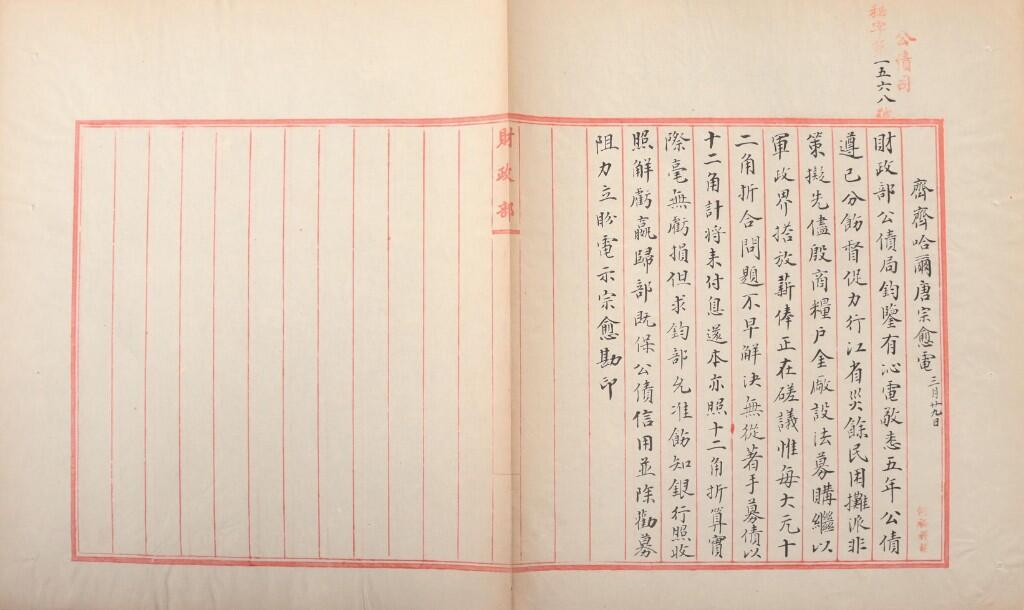 公債司
一五六八號
齊齊哈爾唐宗愈電 三月廿九日
財政部公債局鈞鑒有沁電敬悉五年公債
遵已分飭督促力行江省災餘民困攤派非
策擬先儘殷商糧戶金廠設法募購繼以
軍政界搭放薪俸正在磋議惟每大元十
二角折合問題不早解決無從著手募債以
十二角計將來付息還本亦照十二角折算實
際毫無虧損但求鈞部允准飭知銀行照收
照解虧贏歸部既保公債信用並除勸募
阻力立盼電示宗愈勘印
財政部